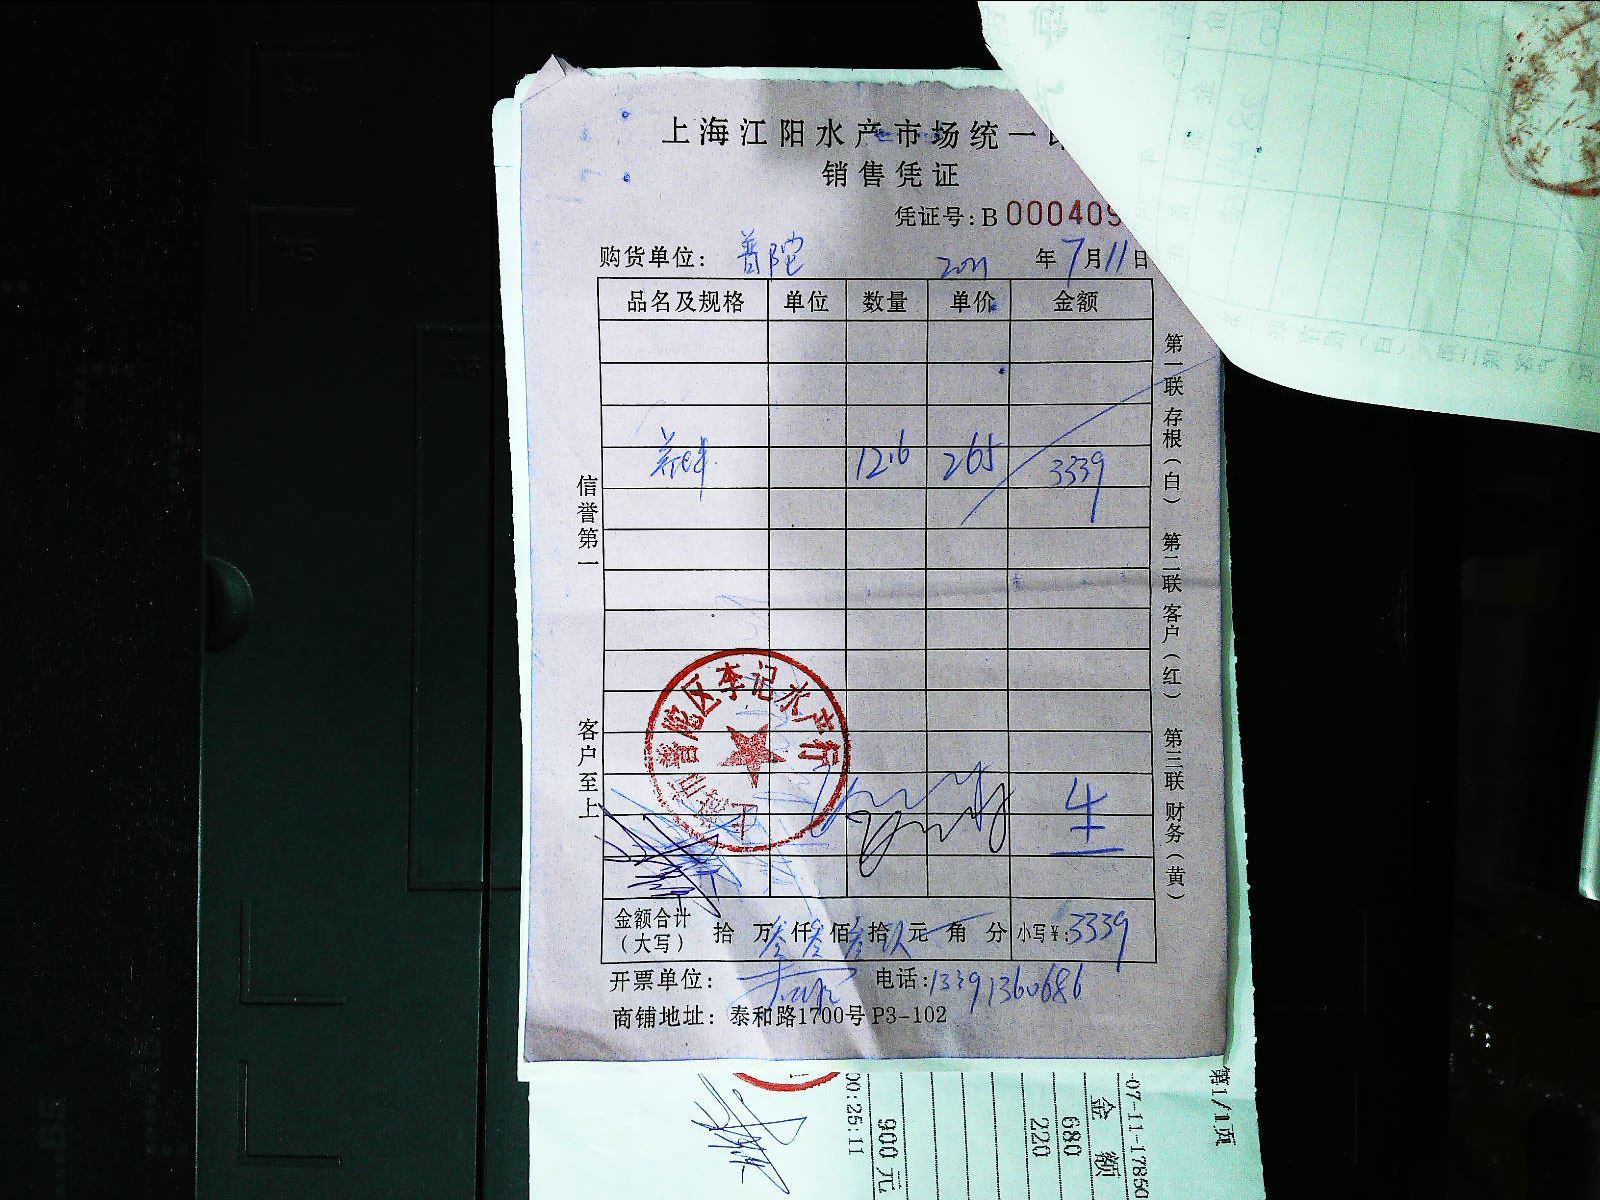 上海江阳水产市场统一
销售凭证
凭证号:B 000409
购货单位: 普陀 2021 年 7 月 11 日
品名及规格 单位 数量 单价 金额
12.6 265 3339
信誉第一
客户至上
第一联 存根(白) 第二联 客户(红) 第三联 财务(黄)
上海市普陀区李记水产行
金额合计(大写) 拾 万 叁仟 叁佰 叁拾 玖元 角 分 小写¥:3339
开票单位: 电话:13391360686
商铺地址: 泰和路1700号P3-102
第1/1页
-07-11-17850
金 额
680
220
900 元
00:25:11